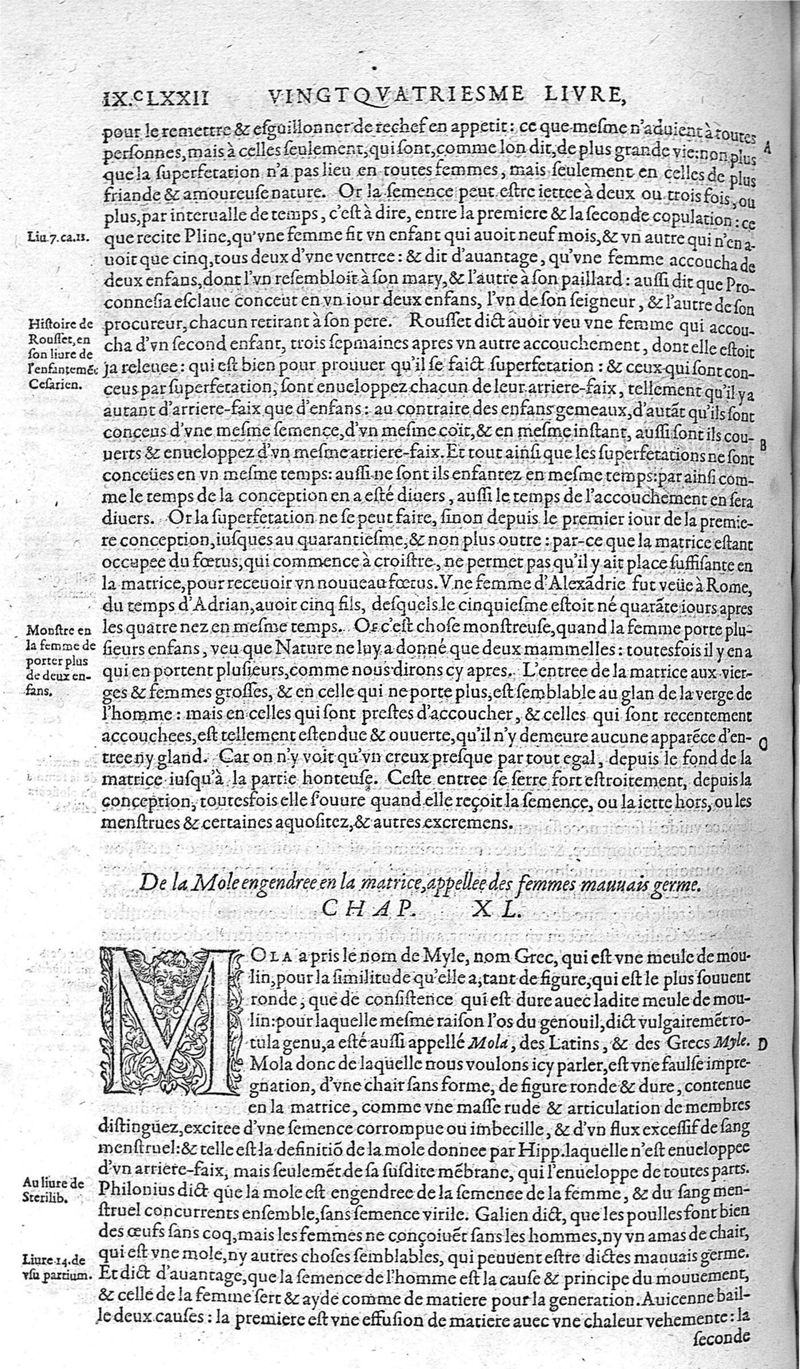 IX.CLXXII VINGTQVATRIESME LIVRE,
pour le remettre & esguillonner de rechef en appetit: ce que mesme n'aduient à toutes
personnes, mais à celles seulement, qui sont, comme lon dit, de plus grande vie: non plus
A
que la superfetation n'a pas lieu en toutes femmes, mais seulement en celles de plus
friande & amoureuse nature. Or la semence peut estre iettee à deux ou trois fois, ou
plus, par interualle de temps, c'est à dire, entre la premiere & la seconde copulation: ce
Liu. 7. ca. 11.
que recite Pline, qu'vne femme fit vn enfant qui auoit neuf mois, & vn autre qui n'en a-
uoit que cinq, tous deux d'vne ventree: & dit d'auantage, qu'vne femme accoucha de
deux enfans, dont l'vn resembloit à son mary, & l'autre à son paillard: aussi dit que Pro-
connesia esclaue conceut en vn iour deux enfans, l'vn de son seigneur, & l'autre de son
Histoire de
Rousset, en
son liure de
l'enfantemẽt
Cesarien.
procureur, chacun retirant à son pere. Rousset dict auoir veu vne femme qui accou-
cha d'vn second enfant, trois sepmaines apres vn autre accouchement, dont elle estoit
ja releuee: qui est bien pour prouuer qu'il se faict superfetation: & ceux qui sont con-
ceus par superfetation, sont enueloppez chacun de leur arriere-faix, tellement qu'il y a
autant d'arriere-faix que d'enfans: au contraire des enfans gemeaux, d'autãt qu'ils sont
conceus d'vne mesme semence, d'vn mesme coït, & en mesme instant, aussi sont ils cou-
B
uerts & enueloppez d'vn mesme arriere-faix. Et tout ainsi que les superfetations ne sont
conceües en vn mesme temps: aussi ne sont ils enfantez en mesme temps: par ainsi com-
me le temps de la conception en a esté diuers, aussi le temps de l'accouchement en sera
diuers. Or la superfetation ne se peut faire, sinon depuis le premier iour de la premie-
re conception, iusques au quarantiesme, & non plus outre: par-ce que la matrice estant
occupee du fœtus, qui commence à croistre, ne permet pas qu'il y ait place suffisante en
la matrice, pour receuoir vn nouueau fœtus. Vne femme d'Alexãdrie fut veüe à Rome,
du temps d'Adrian, auoir cinq fils, desquels le cinquiesme estoit né quarãte iours apres
Monstre en
la femme de
porter plus
de deux en-
fans.
les quatre nez en mesme temps. Or c'est chose monstreuse, quand la femme porte plu-
sieurs enfans, veu que Nature ne luy a donné que deux mammelles: toutesfois il y en a
qui en portent plusieurs, comme nous dirons cy apres. L'entree de la matrice aux vier-
ges & femmes grosses, & en celle qui ne porte plus, est semblable au glan de la verge de
l'homme: mais en celles qui sont prestes d'accoucher, & celles qui sont recentement
accouchees, est tellement estendue & ouuerte, qu'il n'y demeure aucune apparẽce d'en-
C
tree ny gland. Car on n'y voit qu'vn creux presque par tout egal, depuis le fond de la
matrice iusqu'à la partie honteuse. Ceste entree se serre fort estroitement, depuis la
conception, toutesfois elle s'ouure quand elle reçoit la semence, ou la iette hors, ou les
menstrues & certaines aquositez, & autres excremens.
De la Mole engendree en la matrice, appellee des femmes mauuais germe.
CHAP. XL.
MOLA a pris le nom de Myle, nom Grec, qui est vne meule de mou-
lin, pour la similitude qu'elle a, tant de figure, qui est le plus souuent
ronde, que de consistence qui est dure auec ladite meule de mou-
lin: pour laquelle mesme raison l'os du genouil, dict vulgairemẽt ro-
tula genu, a esté aussi appellé Mola, des Latins, & des Grecs Myle.
D
Mola donc de laquelle nous voulons icy parler, est vne faulse impre-
gnation, d'vne chair sans forme, de figure ronde & dure, contenue
en la matrice, comme vne masse rude & articulation de membres
distinguez, excitee d'vne semence corrompue ou imbecille, & d'vn flux excessif de sang
menstruel: & telle est la definitiõ de la mole donnee par Hipp. laquelle n'est enueloppee
d'vn arriere-faix, mais seulemẽt de sa susdite mẽbrane, qui l'enueloppe de toutes parts.
Au liure de
Sterilib.
Philonius dict que la mole est engendree de la semence de la femme, & du sang men-
struel concurrents ensemble, sans semence virile. Galien dict, que les poulles font bien
des œufs sans coq, mais les femmes ne conçoiuẽt sans les hommes, ny vn amas de chair,
Liure 14. de
vsu partium.
qui est vne mole, ny autres choses semblables, qui peuuent estre dictes mauuais germe.
Et dict d'auantage, que la semence de l'homme est la cause & principe du mouuement,
& celle de la femme sert & ayde comme de matiere pour la generation. Auicenne bail-
le deux causes: la premiere est vne effusion de matiere auec vne chaleur vehemente: la
seconde